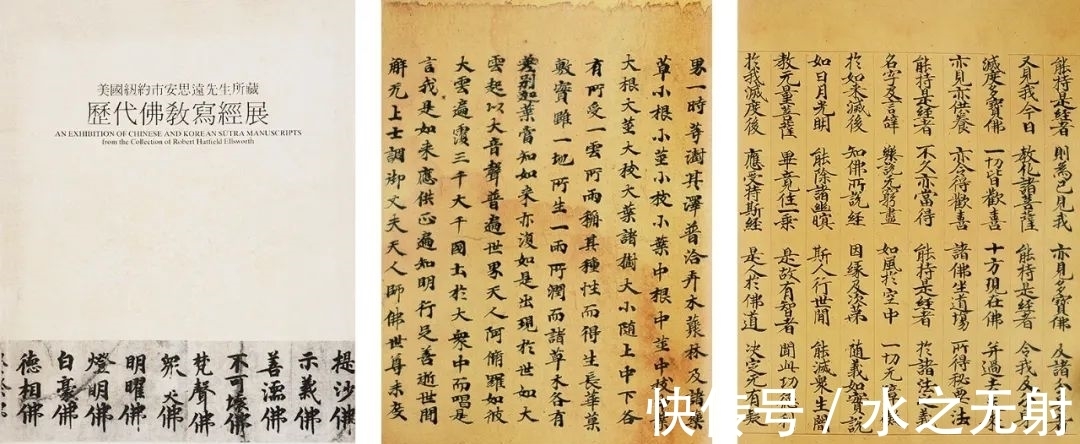 美國紐約市安思遠先生所藏
歷代佛教寫經展
AN EXHIBITION OF CHINESE AND KOREAN SUTRA MANUSCRIPTS
from the Collection of Robert Hatfield Ellsworth
提沙佛
示義佛
善濡佛
不可壞佛
梵聲佛
眾天佛
明曜佛
燈明佛
白豪佛
德相佛
界一時等澍其澤普洽卉木藂林及諸藥
草小根小莖小枝小葉中根中莖中枝
大根大莖大枝大葉諸樹大小隨上中下各
有所受一雲所雨稱其種性而得生長華菓
敷實雖一地所生一雨所潤而諸草木各有
差別迦葉當知如來亦復如是出現於世如大
雲起以大音聲普遍世界天人阿脩羅如彼
大雲遍覆三千大千國土於大眾中而唱是
言我是如來應供正遍知明行足善逝世間
解无上士調御丈夫天人師佛世尊未度
能持是經者 則為已見我 亦見多寶佛 及諸
又見我今日 教化諸菩薩 能持是經者 令我及
滅度多寶佛 一切皆歡喜 十方現在佛 并過去
亦見亦供養 亦令得歡喜 諸佛坐道場 所得秘要法
能持是經者 不久亦當得 能持是經者 於諸法之義
名字及言辭 樂說无窮盡 如風於空中 一切无
於如來滅後 知佛所說經 因緣及次第 隨義如實說
如日月光明 能除諸幽冥 斯人行世間 能滅眾生闇
教无量菩薩 畢竟住一乘 是故有智者 聞此功
於我滅度後 應受持斯經 是人於佛道 決定无有
快传号 / 水之无射